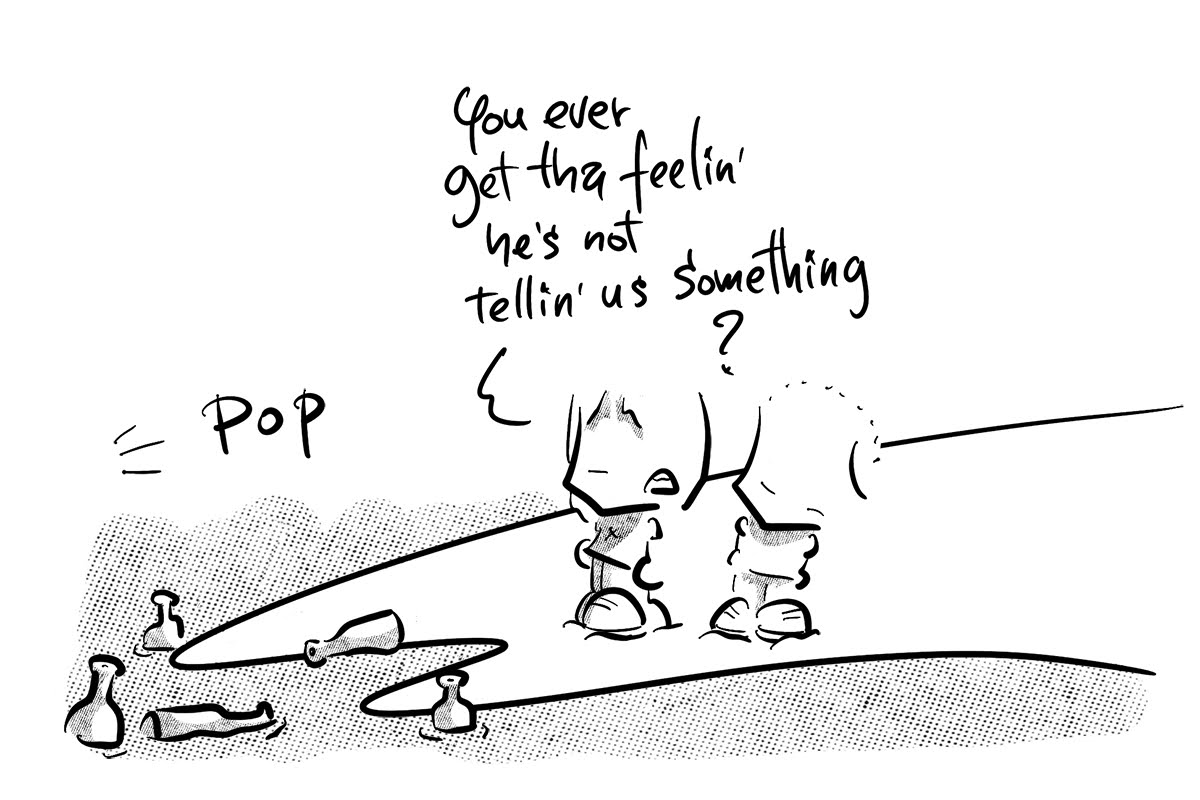 You ever
get tha feelin'
he's not
tellin' us something
?
POP